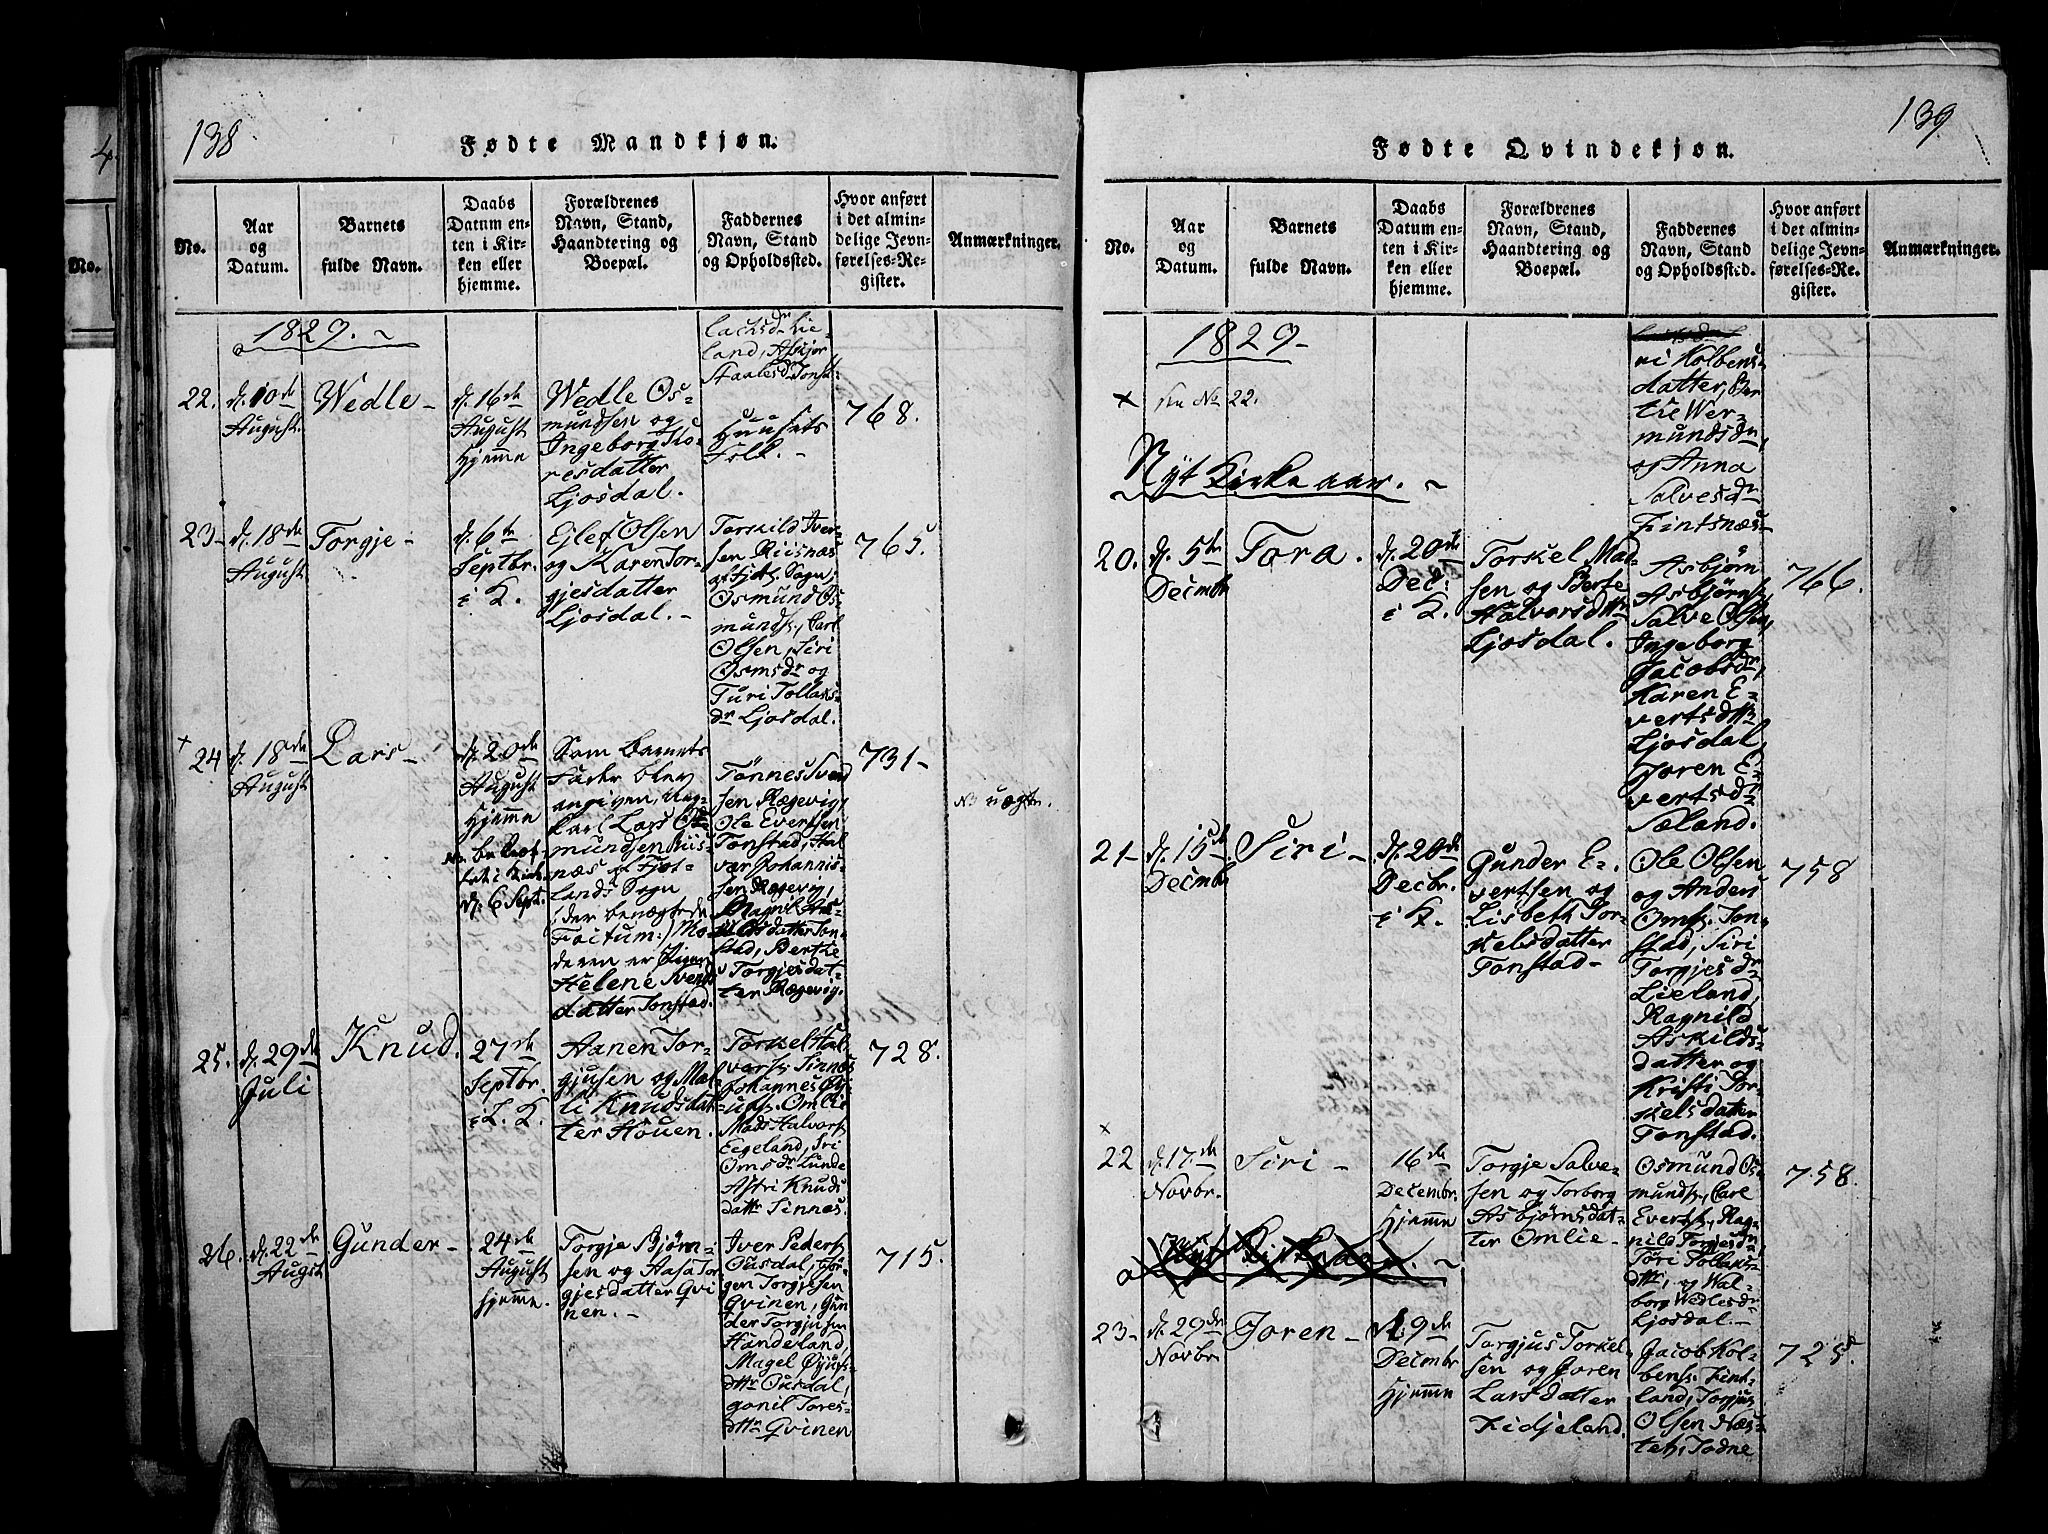 138
Fødte Mandkjøn.
No.
Aar
og
Datum.
Barnets
fulde Navn.
Daabs
Datum en-
ten i Kir-
ken eller
hjemme.
Forældrenes
Navn, Stand,
Haandtering og
Boepæl.
Faddernes
Navn, Stand
og Opholdssted.
Hvor anført
i det almin-
delige Jevn-
førelses-Re-
gister.
Anmærkninger.
1829.
land, Asbjør
Staalesdr Tonst.
22.
d. 10de
August.
Wedle
d. 16de
August
Hjemme
Wedle Os-
mundsen og
Ingeborg To-
resdatter
Ljosdal.
Huusets
Folk.
768.
23
d. 18de
August
Torgje
d. 6te
Septbr.
i K.
Ejlef Olsen
og Karen Tor-
gjesdatter
Ljosdal.
Torkild Iver-
sen Riisnæs
af Fjotl. Sogn,
Osmund Os-
munds., Carl
Olsen, Siri
Osmsdr og
Turi Tollaks-
dr Ljosdal.
765.
24
d. 18de
August
Lars
d. 20de
August
Hjemme
d. 6 Sept.
Som Barnets
Fader blev
angiven, Ung-
karl Lars Os-
mundsen Riis-
næs af Fjot-
lands Sogn
(der benægtede
Factum:) Mo-
deren er Pigen
Helene Svends
datter Tonstad.
Tønnes Svend
sen Rægevig,
Ole Evertsen
Tonstad, Hal
vær Johannis-
sen Rægevig,
Magnil
datter Ton-
stad, Berthe
Torgjesdat-
ter Rægevig.
731
uægte.
25.
d. 29de
Juli
Knud.
27de
Septbr.
i L. K.
Aanen Tor-
gjusen og Mal-
li Knudsdat
ter Houen.
Torkel Hal
vors. Sinnes
Johannes Øy-
ufs. Omlie
Mads Halvors
Eegeland, Siri
Omsdr Lunde
Astri Knuds
dattr Sinnes.
728.
26.
d. 22de
Augst
Gunder
24de
August
hjemme.
Torgje Bjørn-
sen og Aasa Tor
gjesdatter Qvi
nen.
Iver Peders
Ousdal, Jør-
gen Torgjesen
Qvinen, Gun
der Torgjusen
Handeland,
Magel Øyufs-
dttr Ousdal,
gonil Tores-
dttr Qvinen
715.
139
Fødte Qvindekjøn.
No.
Aar
og
Datum.
Barnets
fulde Navn.
Daabs
Datum en-
ten i Kir-
ken eller
hjemme.
Forældrenes
Navn, Stand,
Haandtering og
Boepæl.
Faddernes
Navn, Stand
og Opholdssted.
Hvor anført
i det almin-
delige Jevn-
førelses-Re-
gister.
Anmærkninger.
1829
ri Kolbens-
datter, Ber
the Wer-
mundsdr,
og Anna
Salvesdr
Fintsnæs
No 22.
Nyt Kirkeaar.
20.
d. 5te
Decmbr
Tora.
d. 20de
Dec.
i K.
Torkel Mad-
sen og Berte
Halvorsdttr
Ljosdal.
Asbjørn
Asbjørns.,
Salve Olsen,
Ingeborg
Jacobsdr,
Karen E-
vertsdttr
Ljosdal,
Joren E-
vertsdr
Sæland.
766.
21
d. 15de
Decmbr
Siri
d. 20de
Decbr.
i K.
Gunder E-
vertsen og
Lisbeth Tor-
kelsdatter
Tonstad
Ole Olsen
og Anders
Oms. Ton-
stad, Siri
Torgjesdr
Lieland,
Ragnild
Askilds-
datter og
Kristi Tor-
kelsdatter
Tonstad.
758
22
d. 17de
Novbr.
Siri
16de
Decembr.
Hjemme
Torgje Salve-
sen og Torborg
Asbjørnsdat-
ter Omlie
Osmund Os-
munds., Carl
Everts., Rag-
nild Torgjesdr,
Tori Tollaks-
dttr, og Wal-
borg Wedlesdr
Ljosdal.
758.
Nyt Kirkeaar.
23
d. 29de
Novbr.
Joren
d. 19de
Decmbr
Hjemme
Torgjus Torkel-
sen og Joren
Larsdatter
Fidjeland.
Jacob Kol-
bens. Fint-
land, Torgjus
Olsen Næs-
set, Todne
725.